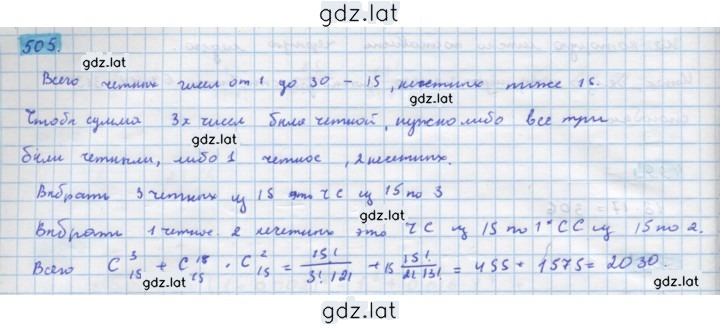 gdz.lat
505.
gdz.lat
Всего четных чисел от 1 до 30 – 15, нечетных тоже 15.
gdz.lat
Чтобы сумма 3х чисел была четной, нужно либо все три
gdz.lat
были четными, либо 1 четное, 2 нечетных.
Выбрать 3 четных из 15 это ЧС из 15 по 3
gdz.lat
Выбрать 1 четное 2 нечетных это ЧС из 15 по 1 · СС из 15 по 2.
Всего C³₁₅ + C¹⁵₁₅ · C²₁₅ = 15! / 3! · 12! + 15 15! / 2! · 13! = 455 + 1575 = 2030.
gdz.lat
gdz.lat
gdz.lat